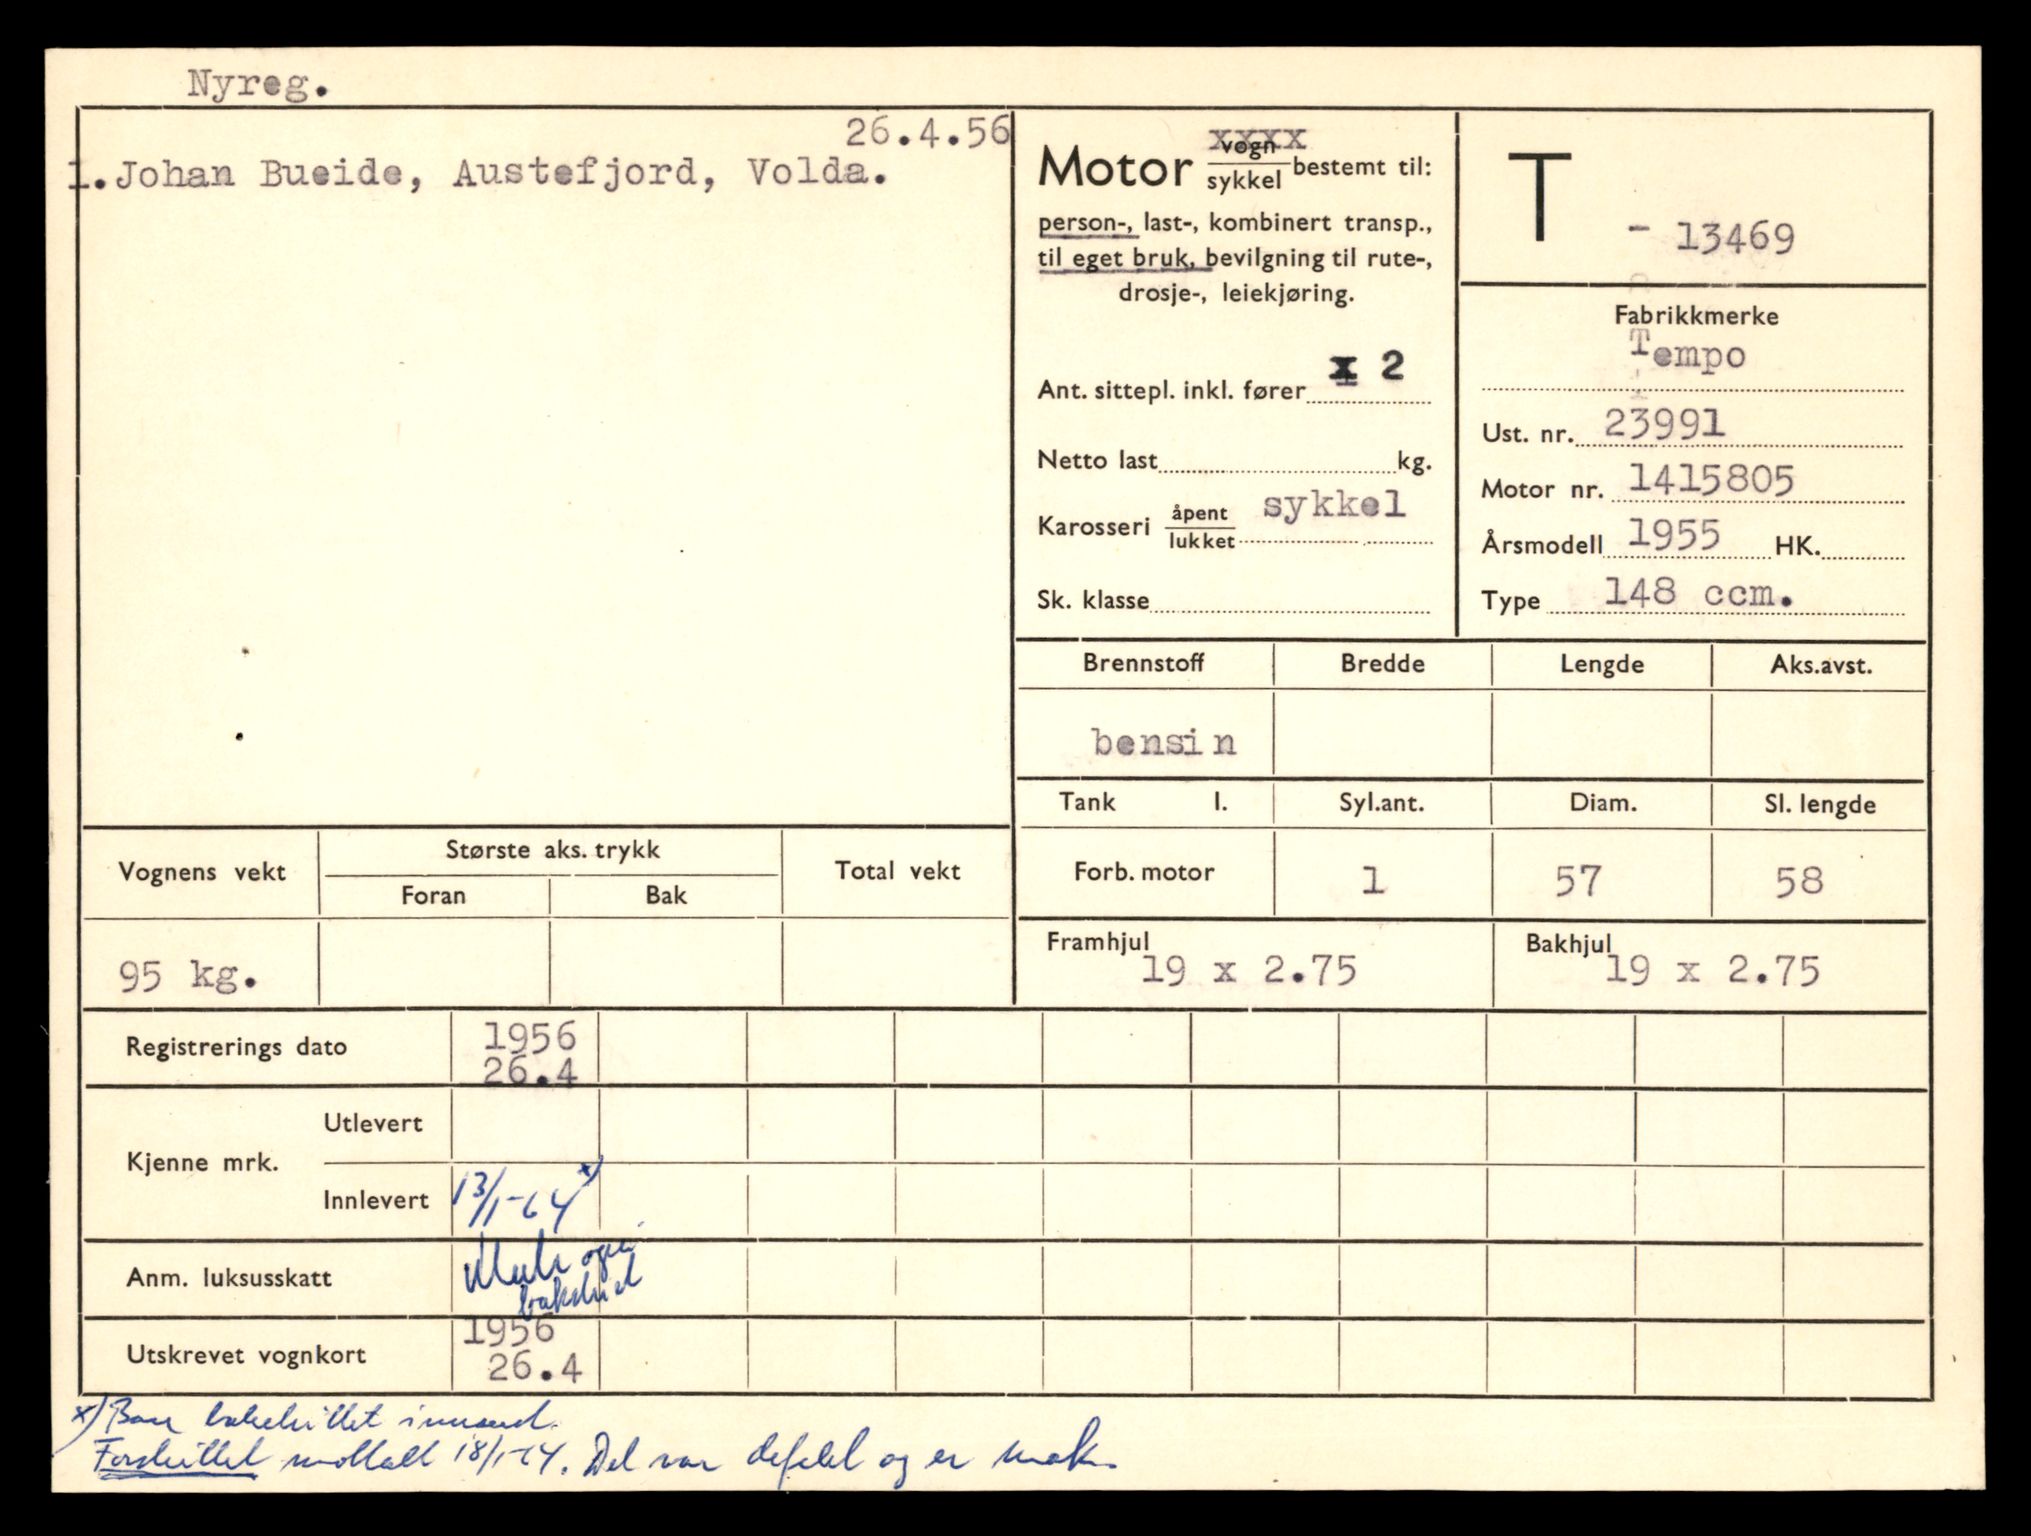 Nyreg.
26.4.56
1.Johan Bueide, Austefjord, Volda.
Motor vogn xxxx
sykkel bestemt til:
person-, last-, kombinert transp.,
til eget bruk, bevilgning til rute-,
drosje-, leiekjøring.
Ant. sittepl. inkl. fører x 2
Netto last kg.
Karosseri åpent sykkel
lukket
Sk. klasse
T - 13469
Fabrikkmerke
Tempo
Ust. nr. 23991
Motor nr. 1415805
Årsmodell 1955 HK.
Type 148 ccm.
Brennstoff Bredde Lengde Aks.avst.
bensin
Tank l. Syl.ant. Diam. Sl. lengde
Forb. motor 1 57 58
Framhjul 19 x 2.75 Bakhjul 19 x 2.75
Vognens vekt Største aks. trykk Total vekt
Foran Bak
95 kg.
Registrerings dato 1956
26.4
Kjenne mrk. Utlevert
Innlevert 13/1-64 x)
Anm. luksusskatt
Utskrevet vognkort 1956
26.4
x) Bare bakskiltet innsend.
Forskiltet mottatt 18/1-64. Det var defekt og er mak.